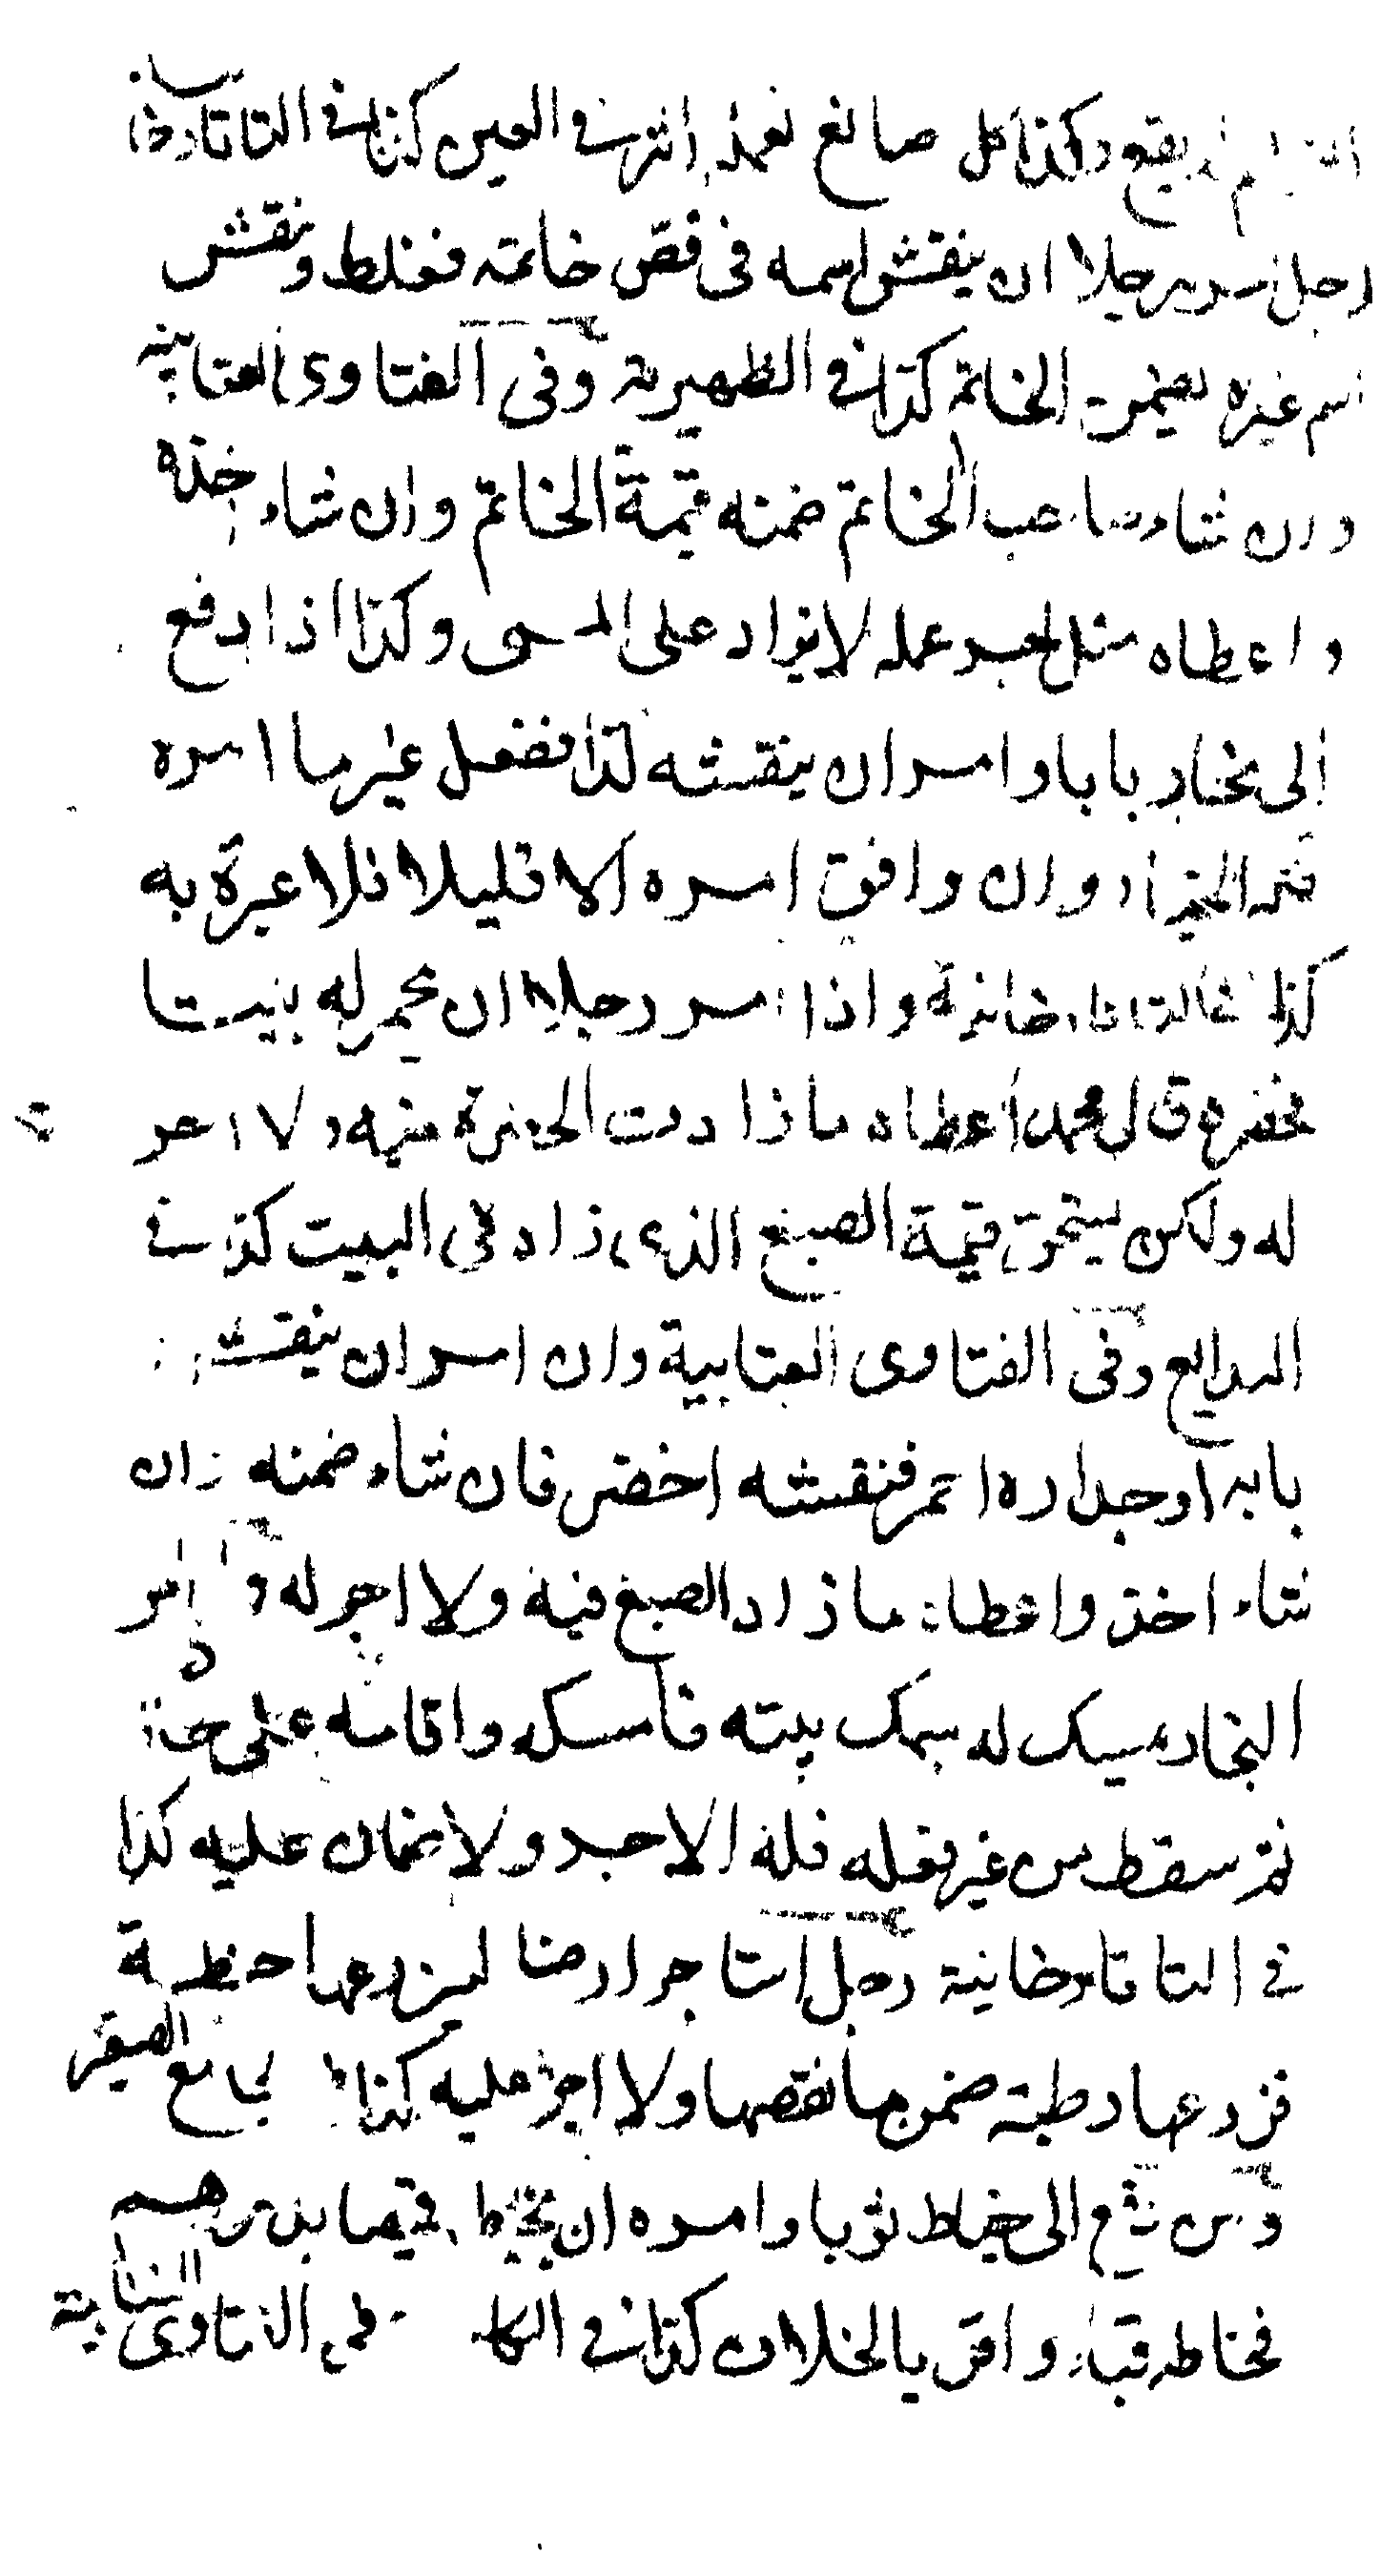 يقع وكذا كل صانع لعمله اثر في العين كذا في التاتارخانية
رجل امر رجلا ان ينقش اسمه في فص خاتمه فغلط ونقش
اسم غيره يضمن الخاتم كذا في الظهيرية وفي الفتاوى العتابية
وان شاء صاحب الخاتم ضمنه قيمة الخاتم وان شاء اخذه
واعطاه مثل اجر عمله لا يزاد على المسمى وكذا اذا دفع
الى نجار بابا وامر ان ينقشه كذا ففعل غير ما امره
فله الخيار وان وافق امره الا قليلا فلا عبرة به
كذا في التاتارخانية واذا امر رجلا ان يحمر له بيتا
فخضره قال محمد اعطاه ما زادت الخضرة فيه ولا اجر
له ولكن يستحق قيمة الصبغ الذي زاد في البيت كذا في
البدايع وفي الفتاوى العتابية وان امر ان ينقش
بابه او جداره احمر فنقشه اخضر فان شاء ضمنه وان
شاء اخذ واعطاه ما زاد الصبغ فيه ولا اجر له وامر
النجار يمسك له سمك بيته فامسكه واقامه على حاله
ثم سقط من غير فعله فله الاجر ولا ضمان عليه كذا
في التاتارخانية رجل استاجر ارضا ليزرعها حنطة
فزرعها رطبة ضمن ما نقصها ولا اجر عليه كذا في الجامع الصغير
ومن دفع الى خياط ثوبا وامره ان يخيط قميصا بدرهم
فخاطه قباء واقر بالخلاف كذا في الكافي وفي الفتاوى العتابية